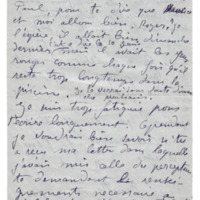 Paul, pour te dire que Maurice
et moi allions bien Roger, je
l'espère il allait bien dimanche
dernier mais il avait les yeux
rouges comme chaque fois qu'il
reste trop longtemps dans la
piscine, je le verrai sans doute demain
je suis trop fatiguée pour
écrire longuement. Cependant
je voudrais bien savoir si tu
a reçu ma lettre dans laquelle
j'avais mis celle du percepteur
te demandant les rensei-
gnements nécessaire